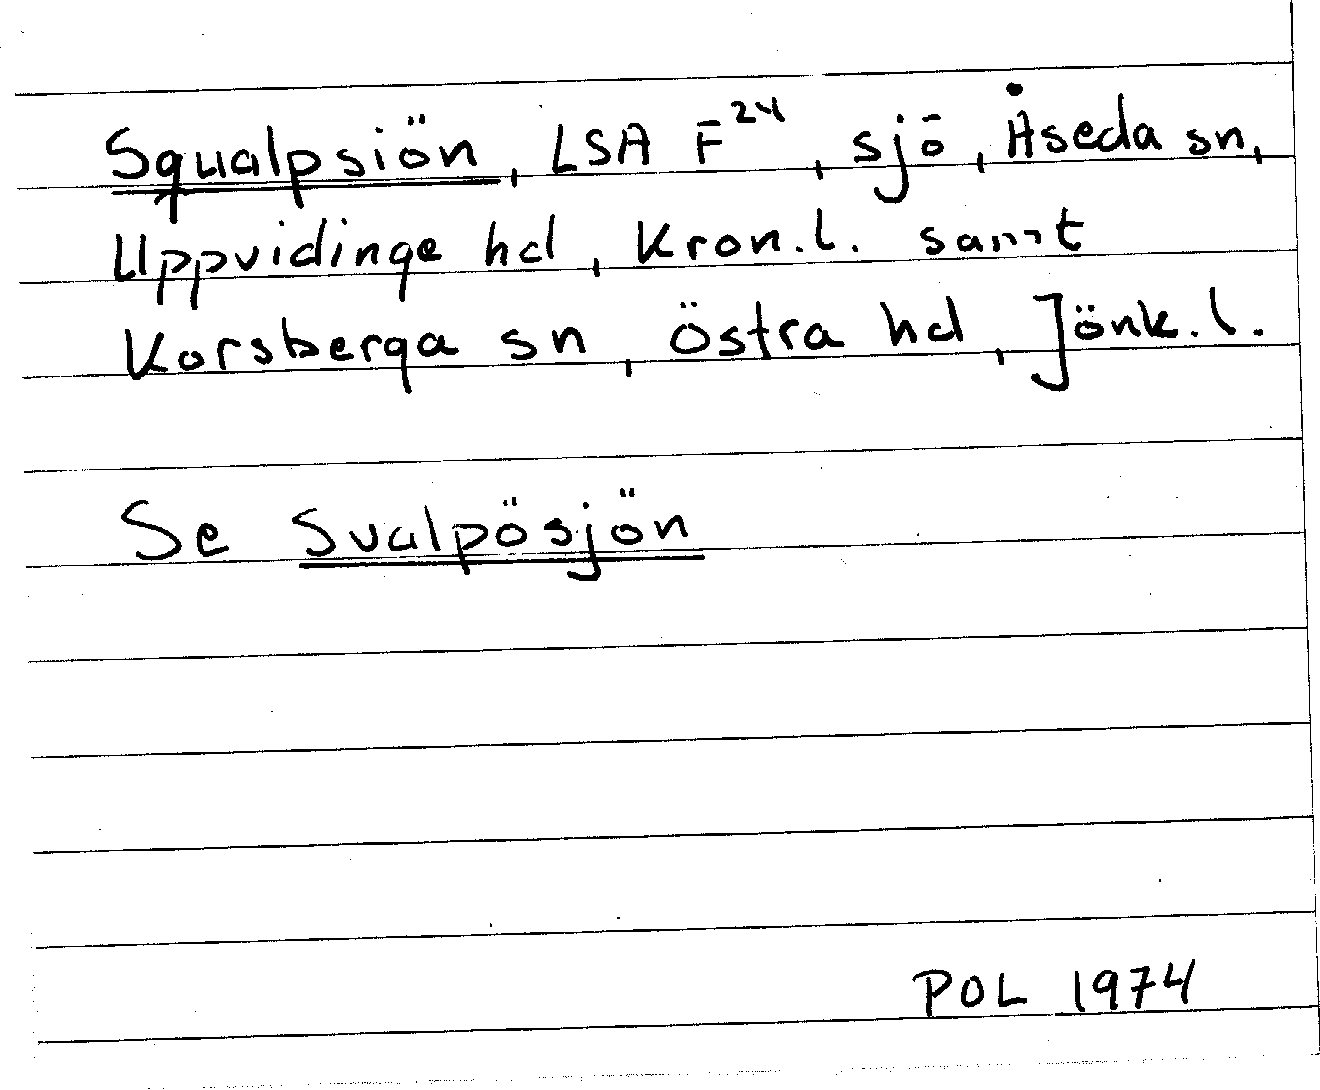 Squalpsiön, LSA F²⁴, sjö, Åseda sn,
Uppvidinge hd, Kron.l. samt
Korsberga sn, östra hd, Jönk.l.
Se Svalpösjön
POL 1974